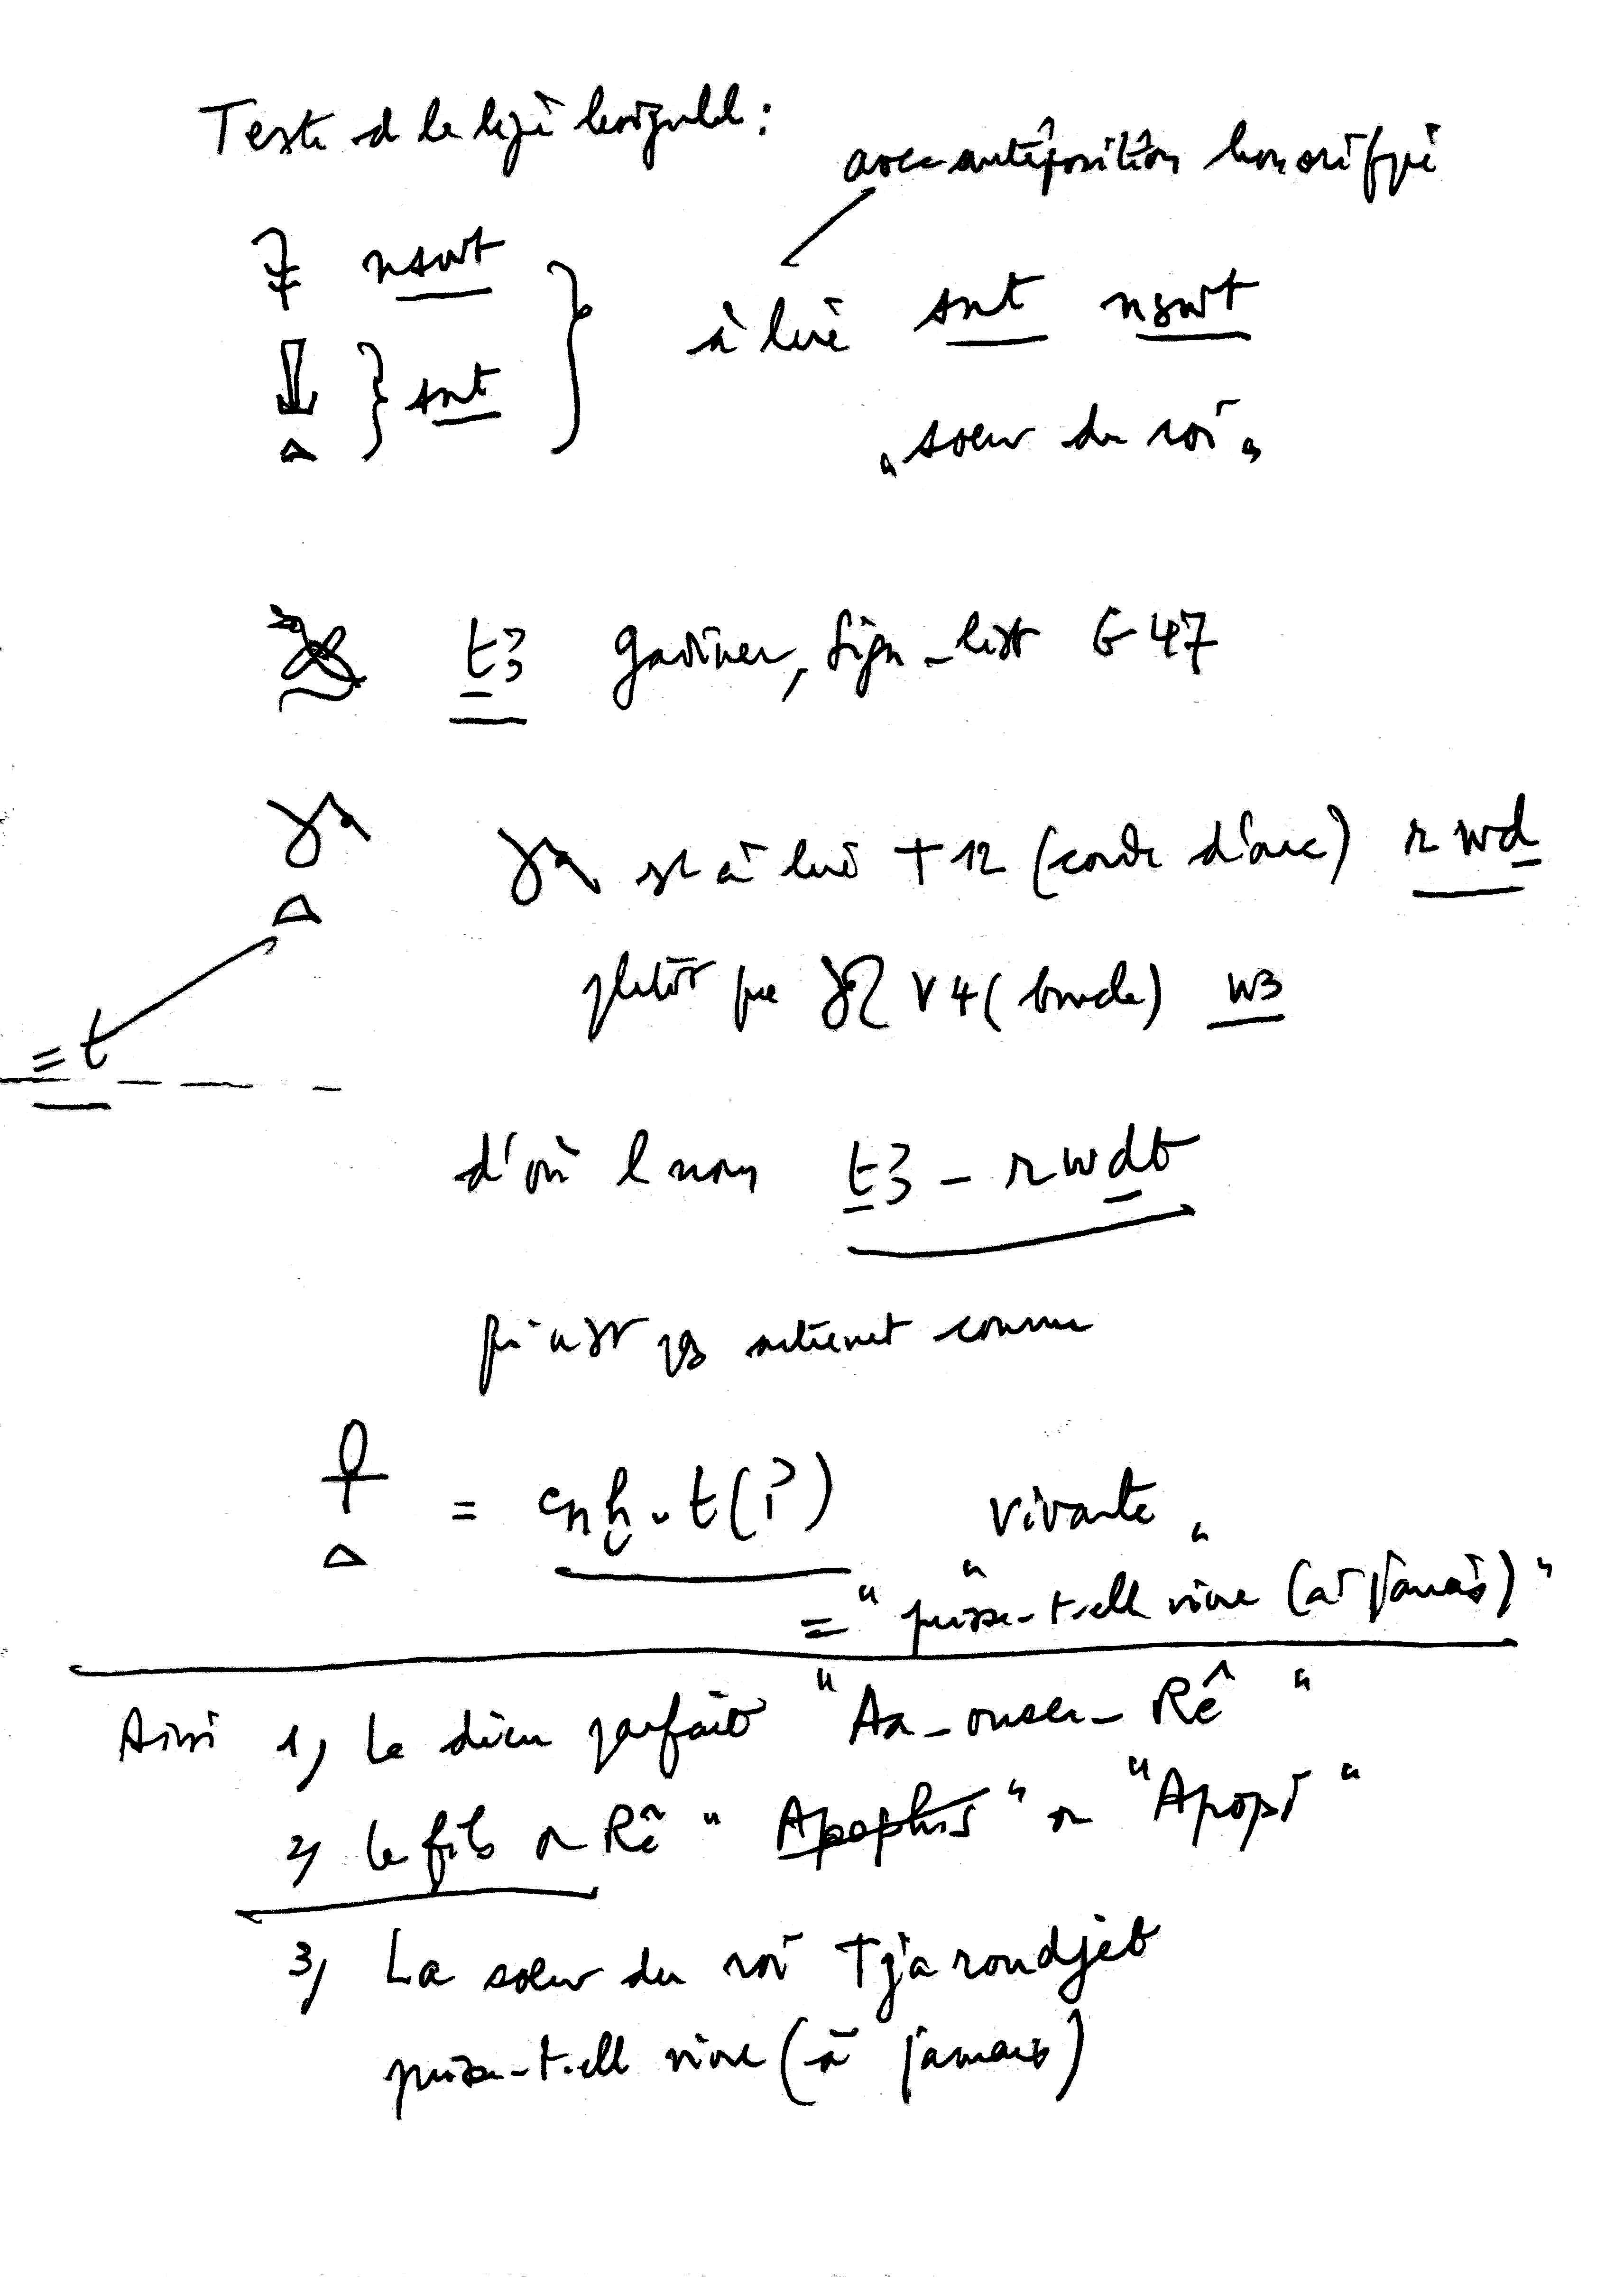 Texte de la ligne horizontale :
avec antéposition honorifique
𓇓 nswt
𓌢 } snt } à lire snt nswt
𓏏
"sœur du roi"
𓅷 ṯ3 Gardiner, Sign-list G 47
𓌗 𓌗 est à lire T 12 (corde d'arc) rwḏ
𓏏
plutôt que 𓍯 V 4 (boucle) w3
= t
d'où le nom ṯ3 - rwḏt
qui n'est pas autrement connue
𓋹
𓏏 = ꜥnḫ.t(i) "vivante"
= "puisse-t-elle vivre (à jamais)"
Ainsi 1) Le dieu parfait "Aa-ouser-Rê"
2) le fils de Rê "Apophis" ou "Apopi"
3) La sœur du roi Tjaroudjet
puisse-t-elle vivre (à jamais)